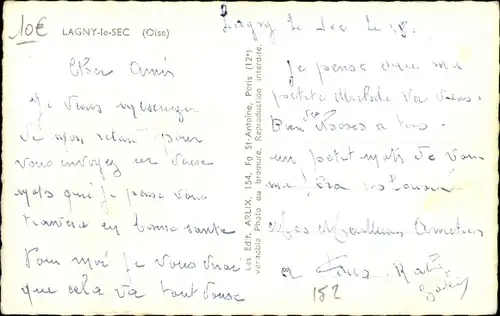 10€
LAGNY-le-SEC (Oise)
Lagny le Sec le 15
Cher Amis
Je vous
de mon retard pour
vous envoyez ces deux
mots que je pense vous
trouvera en bonne sante
Pour moi je vous dirai
que cela va tout douse
Les Edit. ARLIX, 154, Fg St-Antoine, Paris (12e)
véritable Photo au bromure, Reproduction interdite.
Je pense que ma
petite va
Bien des Roses a tous
un petit mots de vous
me fera
Mes Meilleurs Amities
a tous.
152